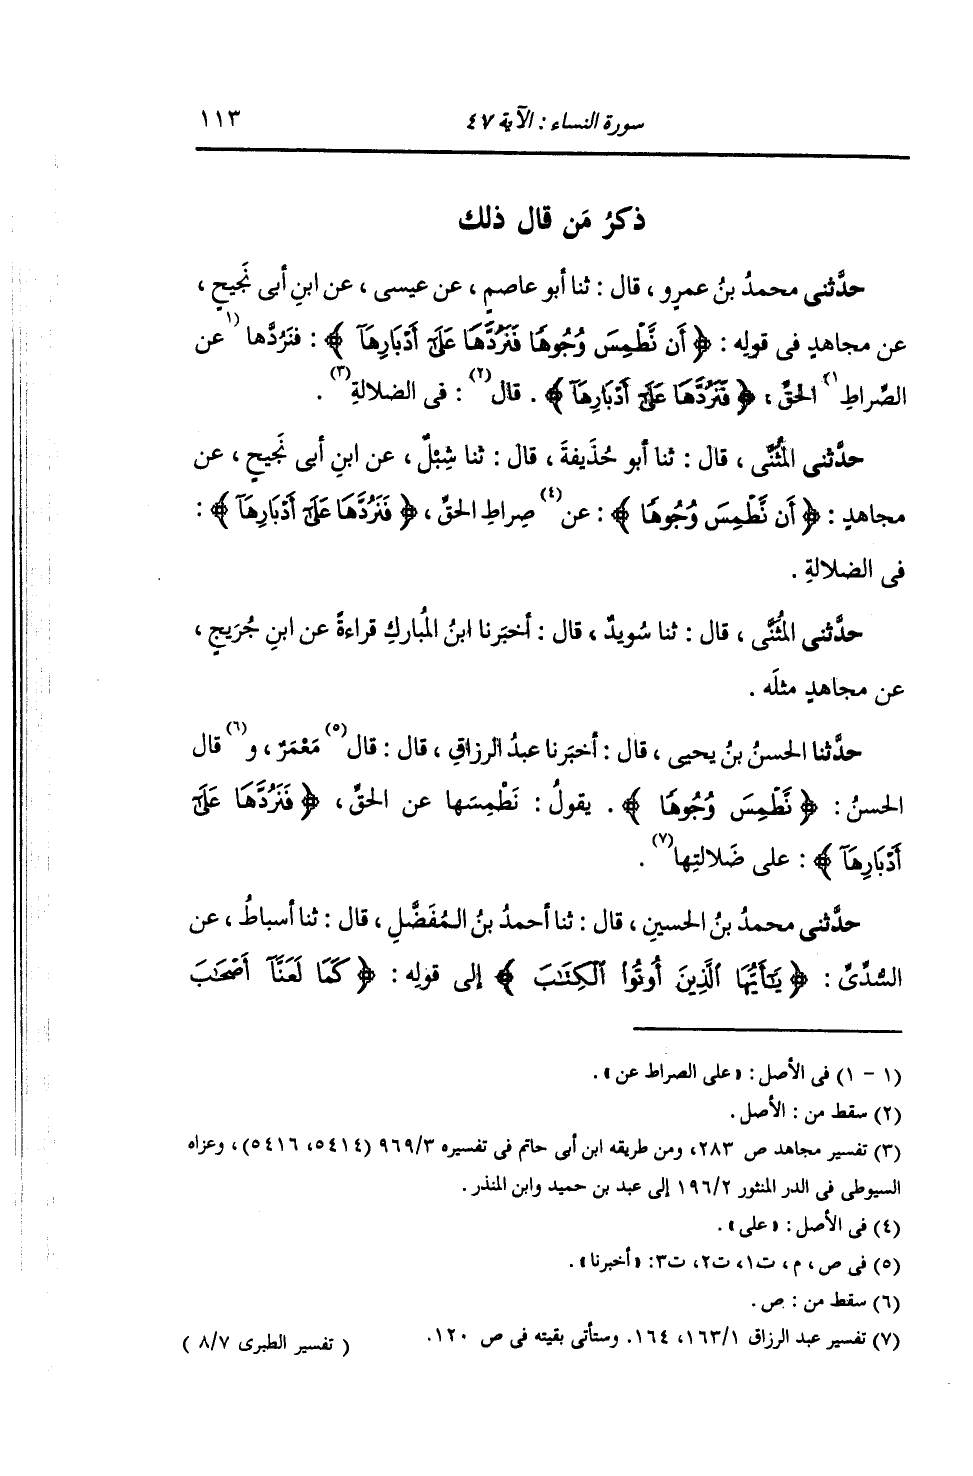 سورة النساء : الآية ٤٧ ١١٣
ذكرُ مَن قال ذلك
حدَّثنى محمدُ بنُ عمرٍو ، قال : ثنا أبو عاصمٍ ، عن عيسى ، عن ابنِ أبى نَجيحٍ ،
عن مجاهدٍ فى قولِه : ﴿ أَن نَّطْمِسَ وُجُوهًا فَنَرُدَّهَا عَلَىٰٓ أَدْبَارِهَآ ﴾ : فنَرُدَّها (١عن
الصِّراطِ١) الحقِّ ، ﴿ فَنَرُدَّهَا عَلَىٰٓ أَدْبَارِهَآ ﴾ . قال(٢) : فى الضلالةِ(٣) .
حدَّثنى المُثَنَّى ، قال : ثنا أبو حُذَيفةَ ، قال : ثنا شِبْلٌ ، عن ابنِ أبى نَجيحٍ ، عن
مجاهدٍ : ﴿ أَن نَّطْمِسَ وُجُوهًا ﴾ : عن(٤) صِراطِ الحقِّ ، ﴿ فَنَرُدَّهَا عَلَىٰٓ أَدْبَارِهَآ ﴾ :
فى الضلالةِ .
حدَّثنى المُثَنَّى ، قال : ثنا سُويدٌ ، قال : أخبَرنا ابنُ المُباركِ قراءةً عن ابنِ جُرَيجٍ ،
عن مجاهدٍ مثلَه .
حدَّثنا الحسنُ بنُ يحيى ، قال : أخبَرنا عبدُ الرزاقِ ، قال : قال(٥) مَعْمَرٌ ، و(٦) قال
الحسنُ : ﴿ نَّطْمِسَ وُجُوهًا ﴾ . يقولُ : نَطْمِسَها عن الحقِّ ، ﴿ فَنَرُدَّهَا عَلَىٰٓ
أَدْبَارِهَآ ﴾ : على ضَلالتِها(٧) .
حدَّثنى محمدُ بنُ الحسينِ ، قال : ثنا أحمدُ بنُ المُفَضَّلِ ، قال : ثنا أسباطُ ، عن
السُّدِّىِّ : ﴿ يَٰٓأَيُّهَا ٱلَّذِينَ أُوتُوا۟ ٱلْكِتَٰبَ ﴾ إلى قولِه : ﴿ كَمَا لَعَنَّآ أَصْحَٰبَ
(١ - ١) فى الأصل : « على الصراط عن » .
(٢) سقط من : الأصل .
(٣) تفسير مجاهد ص ٢٨٣، ومن طريقه ابن أبى حاتم فى تفسيره ٩٦٩/٣ (٥٤١٤، ٥٤١٦) ، وعزاه
السيوطى فى الدر المنثور ١٩٦/٢ إلى عبد بن حميد وابن المنذر .
(٤) فى الأصل : « على » .
(٥) فى ص ، م ، ت١، ت٢، ت٣: « أخبرنا » .
(٦) سقط من : ص .
(٧) تفسير عبد الرزاق ١٦٣/١، ١٦٤. وستأتى بقيته فى ص ١٢٠. ( تفسير الطبرى ٨/٧ )